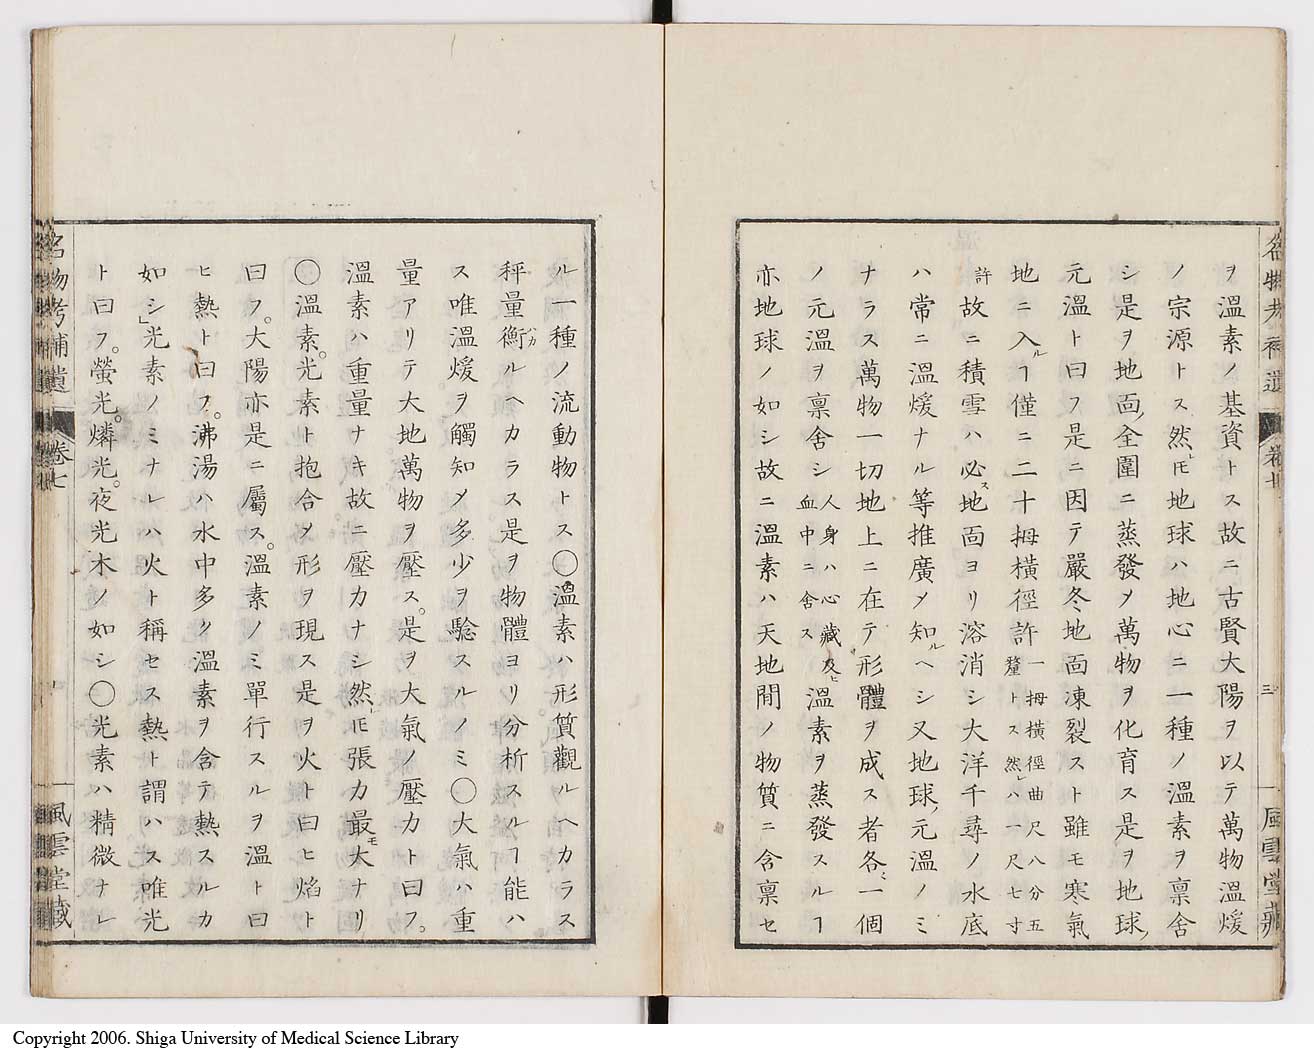 ヲ溫素ノ基資トス故ニ古賢大陽ヲ以テ萬物溫煖
ノ宗源トス然レ𪜈地球ハ地心ニ一種ノ溫素ヲ禀舍
シ是ヲ地面ノ全圍ニ蒸發メ萬物ヲ化育ス是ヲ地球ノ
元溫ト曰フ是ニ因テ嚴冬地面凍裂スト雖モ寒氣
地ニ入ルヿ僅ニ二十拇橫徑許一拇橫徑曲尺八分五
釐トス然レハ一尺七寸
許故ニ積雪ハ必ス地面ヨリ溶消シ大洋千尋ノ水底
ハ常ニ溫煖ナル等推廣メ知ルヘシ又地球ノ元溫ノミ
ナラス萬物一切地上ニ在テ形體ヲ成ス者各々一個
ノ元溫ヲ禀舍シ人身ハ心藏及ヒ
血中ニ舍ス溫素ヲ蒸發スルヿ
亦地球ノ如シ故ニ溫素ハ天地間ノ物質ニ含禀セ
名物考補遺 卷七 三 風雲堂藏
ル一種ノ流動物トス〇溫素ハ形質觀ルヘカラス
秤量衡ルヘカラス是ヲ物體ヨリ分析スルヿ能ハ
ハカ
ス唯溫煖ヲ觸知メ多少ヲ驗スルノミ〇大氣ハ重
量アリテ大地萬物ヲ壓ス。是ヲ大氣ノ壓力ト曰フ。
溫素ハ重量ナキ故ニ壓力ナシ然レ𪜈張力最モ大ナリ
〇溫素。光素ト抱合メ形ヲ現ス是ヲ火ト曰ヒ焰ト
曰フ。大陽亦是ニ屬ス。溫素ノミ單行スルヲ溫ト曰
ヒ熱ト曰フ。沸湯ハ水中多ク溫素ヲ含テ熱スルカ
如シ」光素ノミナレハ火ト稱セス熱ト謂ハス唯光
ト曰フ。螢光。燐光。夜光木ノ如シ〇光素ハ精微ナル
名物考補遺 卷七 風雲堂藏
Copyright 2006. Shiga University of Medical Science Library